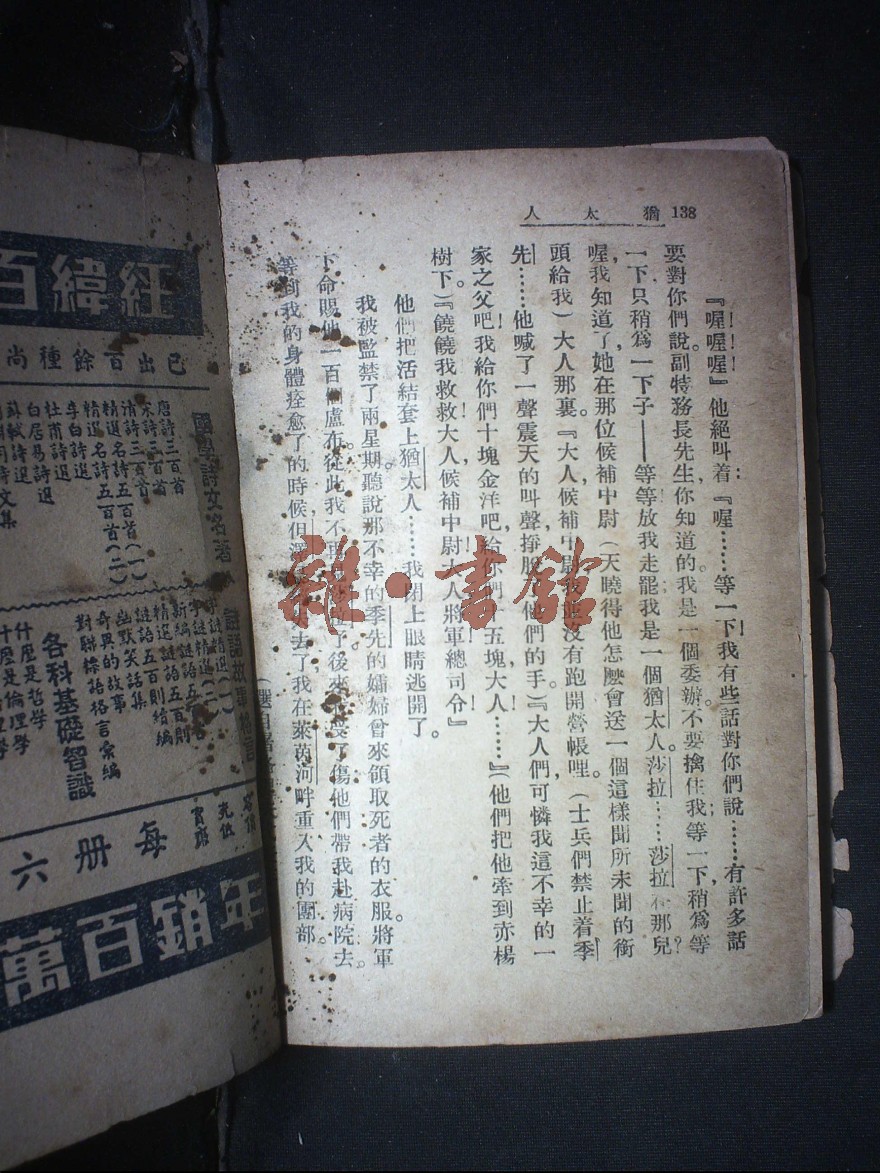 138
猶太人
『喔!喔!喔!』他絕叫着:『喔……等一下,我有些話對你們說……有許多話
要對你們說。副特務長先生,你知道的,我是一個委辦,不要擒住我!等一下,稍爲等
一下,只稍爲一下子——等等!放我走罷!我是一個猶太人!莎拉……莎拉在那兒?
喔,我知道了!她在那位候補中尉(天曉得他怎麽會送一個這樣聞所未聞的銜
頭給我)大人那裏。『大人,候補中尉,我並沒有跑開營帳哩。』(士兵們禁止着季
先……他喊了一聲震天的叫聲,掙脫了他們的手。)『大人們,可憐我這不幸的一
家之父吧!我給你們十塊金洋吧,給你們十五塊,大人……』(他們把他牽到赤楊
樹下。)『饒饒我!救救!大人,候補中尉!大人,將軍總司令!』
他們把活結套上猶太人……我閉上眼睛逃開了。
我被監禁了兩星期。聽說那不幸的季先的孀婦曾來領取死者的衣服。將軍
下命賜他一百個盧布。從此我不再
了。後來我受了傷;他們帶我赴病院去。
等到我的身體痊愈了的時候,但澤
失去了,我在萊茵河畔重入我的團部。
雜·書館
經緯百
已出百餘種尚
國學詩文名著
唐詩三百首
宋詩三百首
清詩三百首
精選名詩五百首(一)
精選名詩五百首(二)
李白詩選
杜甫詩選
白居易詩選
蘇軾詩選
新編謎語五百則
精選謎語五百則續編
幽默笑話集
奇異的故事
對聯標語格言彙編
各科基礎智識
什麼是哲學
什麼是倫理學
每册六
年銷百萬